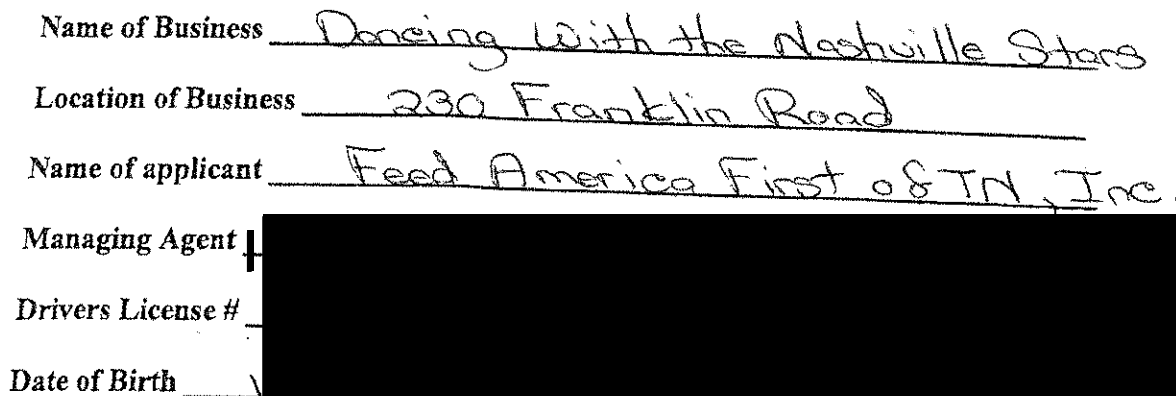 Name of Business Dancing With the Nashville Stars
Location of Business 230 Franklin Road
Name of applicant Feed America First of TN, Inc.
Managing Agent
Drivers License #
Date of Birth